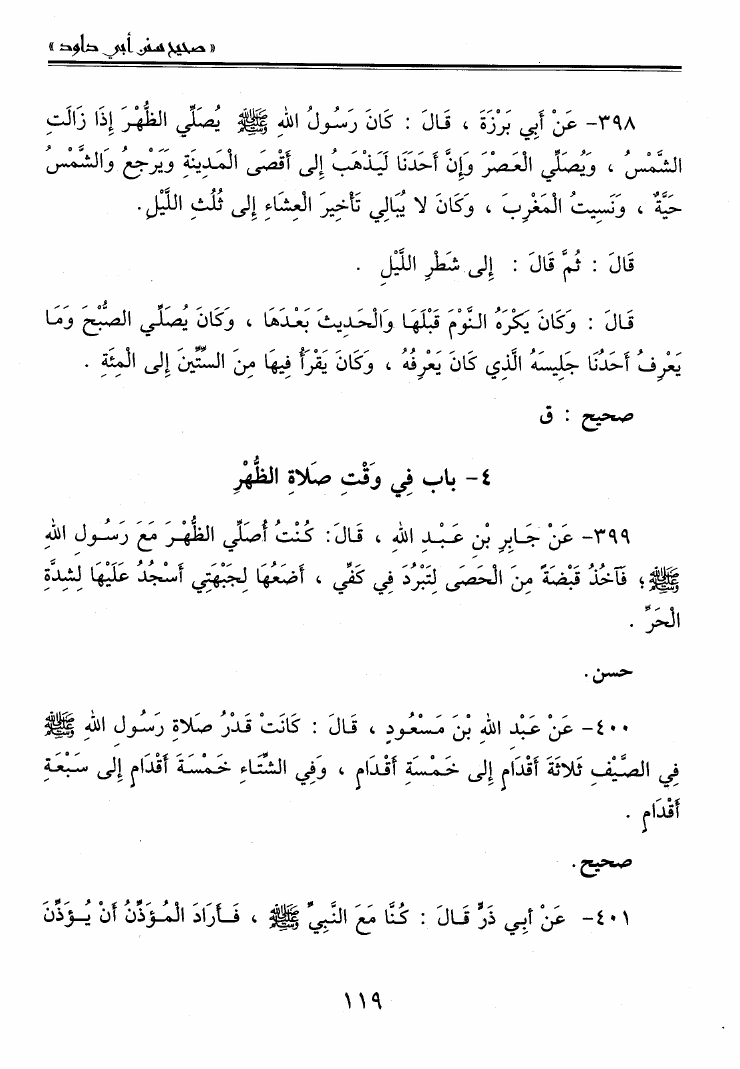 « صحيح سنن أبي داود »
٣٩٨- عَنْ أَبِي بَرْزَةَ ، قَالَ : كَانَ رَسُولُ اللهِ ﷺ يُصَلِّي الظُّهْرَ إِذَا زَالَتِ
الشَّمْسُ ، وَيُصَلِّي الْعَصْرَ وَإِنَّ أَحَدَنَا لَيَذْهَبُ إِلَى أَقْصَى الْمَدِينَةِ وَيَرْجِعُ وَالشَّمْسُ
حَيَّةٌ ، وَنَسِيتُ الْمَغْرِبَ ، وَكَانَ لا يُبَالِي تَأْخِيرَ الْعِشَاءِ إِلَى ثُلُثِ اللَّيْلِ.
قَالَ : ثُمَّ قَالَ : إِلَى شَطْرِ اللَّيْلِ .
قَالَ : وَكَانَ يَكْرَهُ النَّوْمَ قَبْلَهَا وَالْحَدِيثَ بَعْدَهَا ، وَكَانَ يُصَلِّي الصُّبْحَ وَمَا
يَعْرِفُ أَحَدُنَا جَلِيسَهُ الَّذِي كَانَ يَعْرِفُهُ ، وَكَانَ يَقْرَأُ فِيهَا مِنَ السِّتِّينَ إِلَى الْمِئَةِ .
صحيح : ق
٤- باب فِي وَقْتِ صَلاةِ الظُّهْرِ
٣٩٩- عَنْ جَابِرِ بْنِ عَبْدِ اللهِ ، قَالَ: كُنْتُ أُصَلِّي الظُّهْرَ مَعَ رَسُولِ اللهِ
ﷺ؛ فَآخُذُ قَبْضَةً مِنَ الْحَصَى لِتَبْرُدَ فِي كَفِّي ، أَضَعُهَا لِجَبْهَتِي أَسْجُدُ عَلَيْهَا لِشِدَّةِ
الْحَرِّ .
حسن.
٤٠٠- عَنْ عَبْدِ اللهِ بْنَ مَسْعُودٍ ، قَالَ : كَانَتْ قَدْرُ صَلاةِ رَسُولِ اللهِ ﷺ
فِي الصَّيْفِ ثَلاثَةَ أَقْدَامٍ إِلَى خَمْسَةِ أَقْدَامٍ ، وَفِي الشِّتَاءِ خَمْسَةَ أَقْدَامٍ إِلَى سَبْعَةِ
أَقْدَامٍ .
صحيح.
٤٠١- عَنْ أَبِي ذَرٍّ قَالَ : كُنَّا مَعَ النَّبِيِّ ﷺ ، فَأَرَادَ الْمُؤَذِّنُ أَنْ يُؤَذِّنَ
١١٩